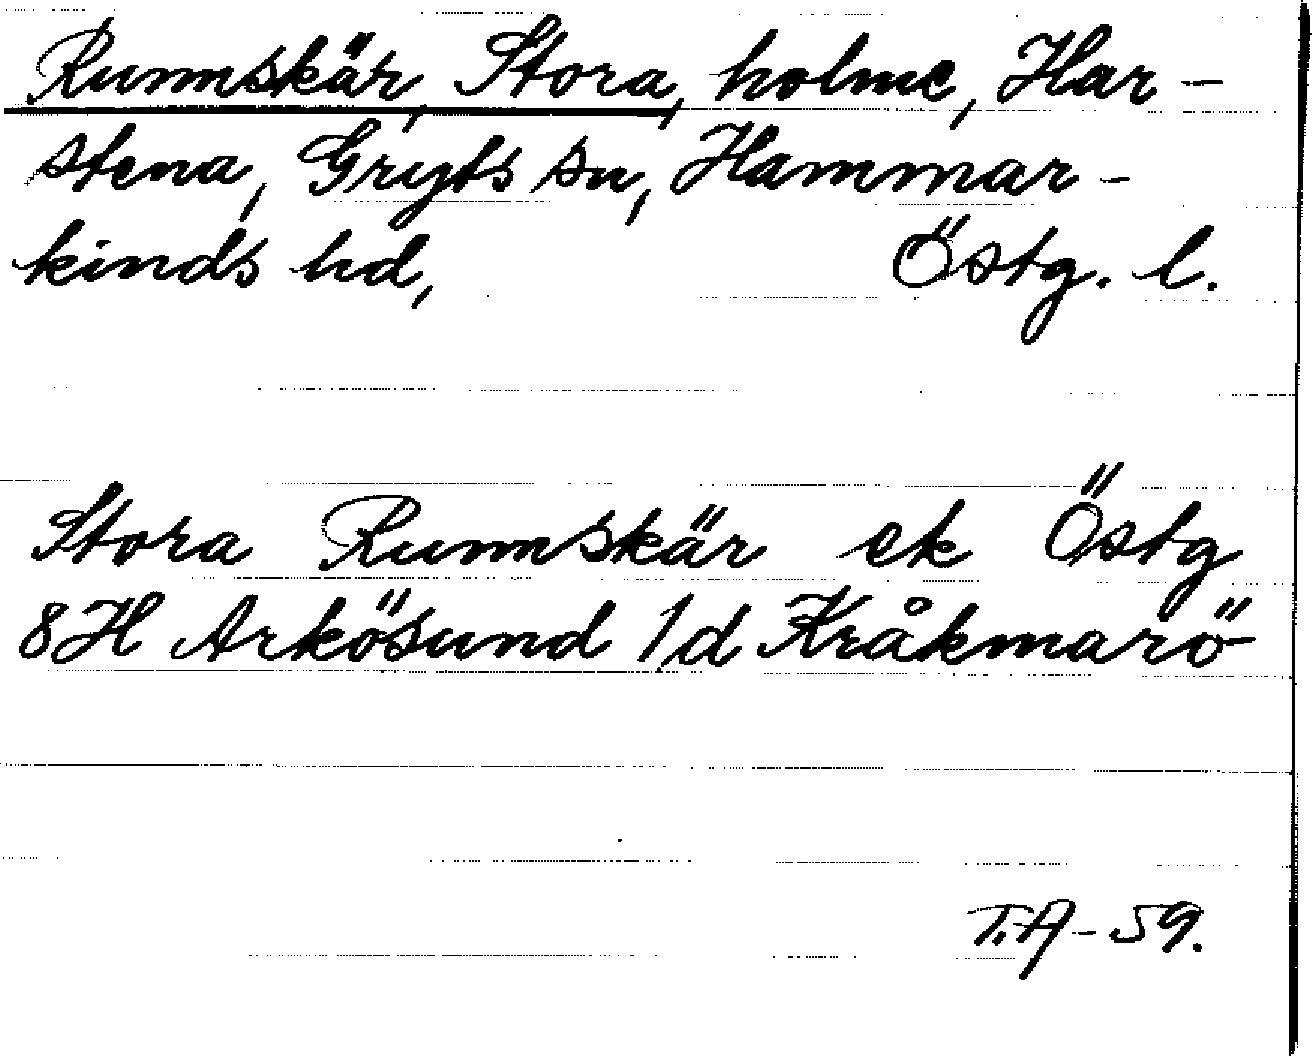 Rumskär, Stora, holme, Har-
stena, Gryts sn, Hammar-
kinds hd, Östg. l.
Stora Rumskär ek Östg
8H Arkösund 1/d Kråkmarö
T.A-59.